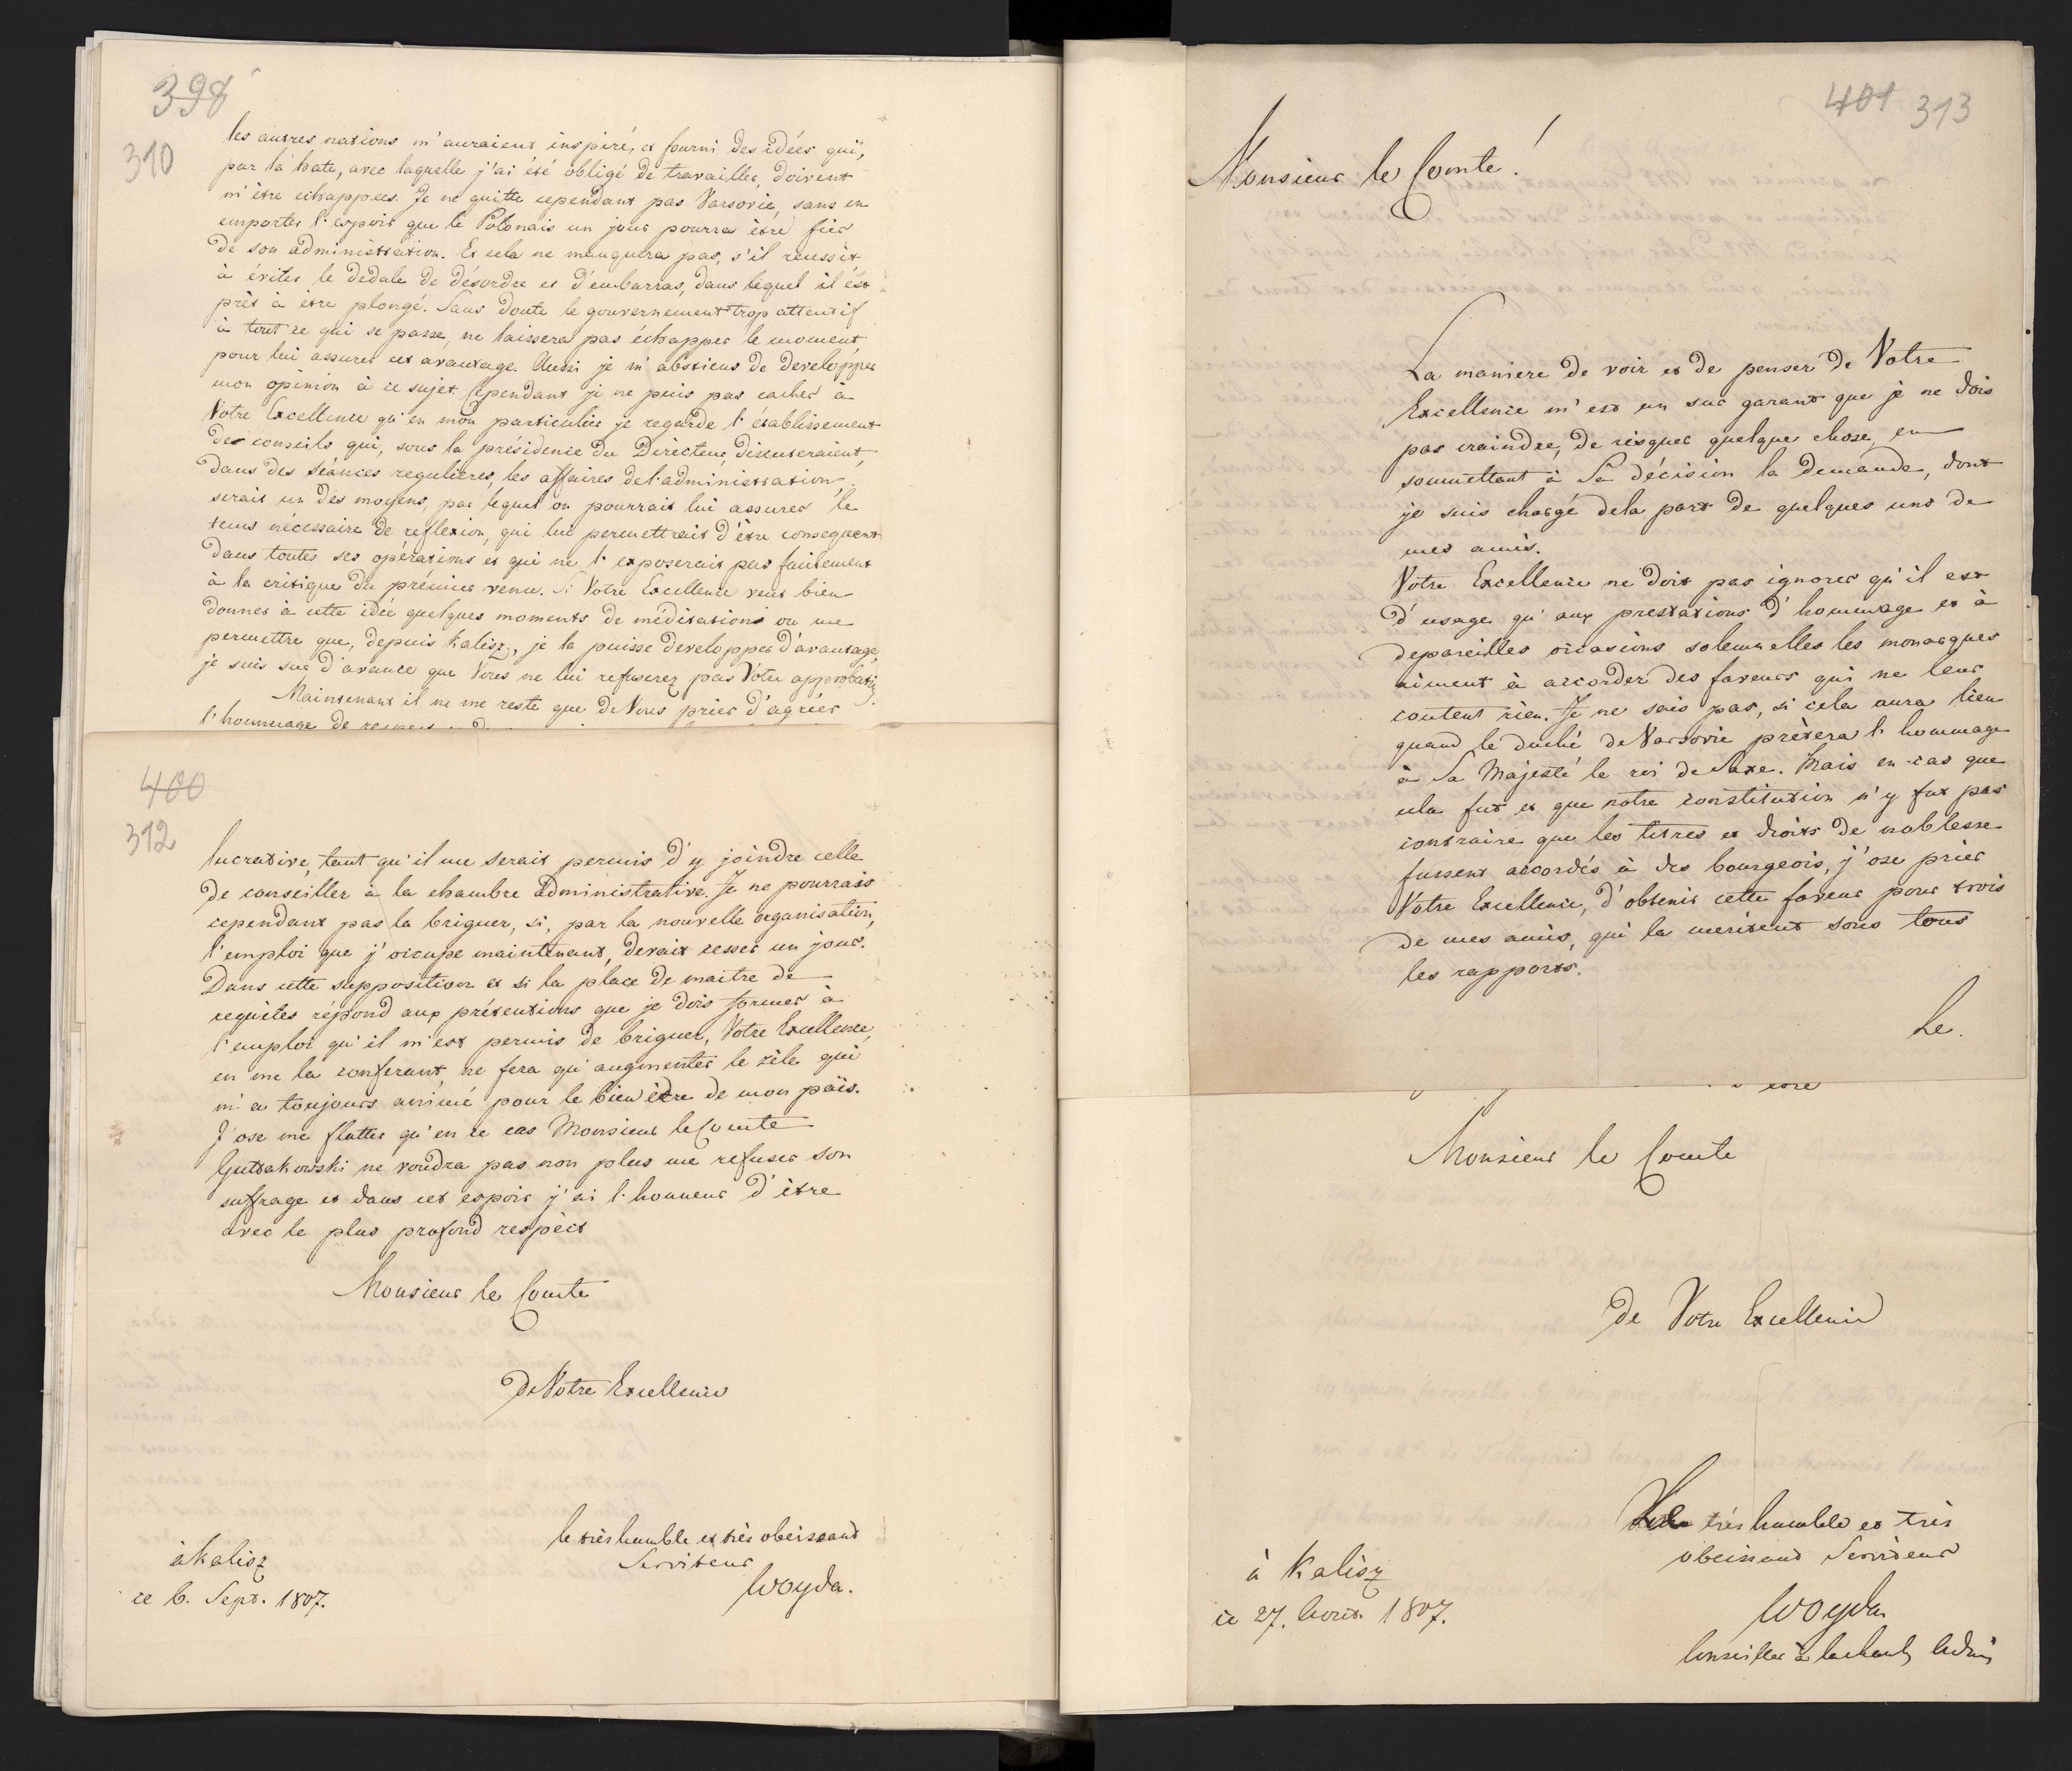 398
310
les autres nations m'auraient inspiré, et fourni des idées qui,
par la hate, avec laquelle j'ai été obligé de travailler, doivent
m'être echappees. Je ne quitte cependant pas Varsovie, sans en
emporter l'espoir que le Polonais un jour pourra être fier
de son administration. Et cela ne manquera pas, s'il reussit
à éviter le dedale de désordre et d'embarras, dans lequel il est
près à être plongé. Sans doute le gouvernement trop attentif
à tout ce qui se passe, ne laissera pas échapper le moment,
pour lui assurer cet avantage. Aussi je m'abstiens de developper
mon opinion à ce sujet. Cependant je ne puis pas cacher à
Votre Excellence qu'en mon particulier je regarde l'établissement
des conseils, qui, sous la présidence du Directeur, discuteraient,
dans des séances regulières, les affaires de l'administration,
serait un des moyens, par lequel on pourrait lui assurer le
tems nécessaire de reflexion, qui lui permettrait d'être consequent
dans toutes ses opérations et qui ne l'exposerait pas facilement
à la critique du prémier venu. Si Votre Excellence veut bien
donner à cette idée quelques moments de méditations ou me
permettre que, depuis Kalisz, je la puisse developper d'avantage,
je suis sur d'avance que Vous ne lui refuserez pas Votre approbation.
Maintenant il ne me reste que de Vous prier d'agréer
l'hommage de respect
400
312
lucrative, tant qu'il me serait permis d'y joindre celle
de conseiller à la chambre administrative. Je ne pourrais
cependant pas la briguer, si, par la nouvelle organisation,
l'emploi que j'occupe maintenant, devait cesser un jour.
Dans cette supposition et si la place de maitre de
requêtes répond aux prétentions que je dois former à
l'emploi qu'il m'est permis de briguer, Votre Excellence,
en me la conferant, ne fera qu'augmenter le zèle qui
m'a toujours animé pour le bien être de mon païs.
J'ose me flatter qu'en ce cas Monsieur le Comte
Gutakowski ne voudra pas non plus me refuser son
suffrage et dans cet espoir j'ai l'honneur d'être
avec le plus profond respect
Monsieur le Comte
de Votre Excellence
le très humble et très obeissant
Serviteur
Woyda.
à Kalisz
ce 6. Sept. 1807.
401 313
Monsieur le Comte!
La maniere de voir et de penser de Votre
Excellence m'est un sur garant que je ne dois
pas craindre, de risquer quelque chose, en
soumettant à Sa décision la demande, dont
je suis chargé de la part de quelques uns de
mes amis.
Votre Excellence ne doit pas ignorer qu'il est
d'usage qu'aux prestations d'hommage et à
de pareilles occasions solemnelles les monarques
aiment à accorder des faveurs qui ne leur
coutent rien. Je ne sais pas, si cela aura lieu
quand le duché de Varsovie prêtera l'hommage
à Sa Majesté le roi de Saxe. Mais en cas que
cela fut et que notre constitution n'y fut pas
contraire que les titres et droits de noblesse
fussent accordés à des bourgeois, j'ose prier
Votre Excellence, d'obtenir cette faveur pour trois
de mes amis, qui la meritent sous tous
les rapports.
Le.
Monsieur le Comte
de Votre Excellence
très humble et très
obeissant Serviteur
Woyda
Conseiller à la chamb. Admi
à Kalisz
ce 27. Aout. 1807.